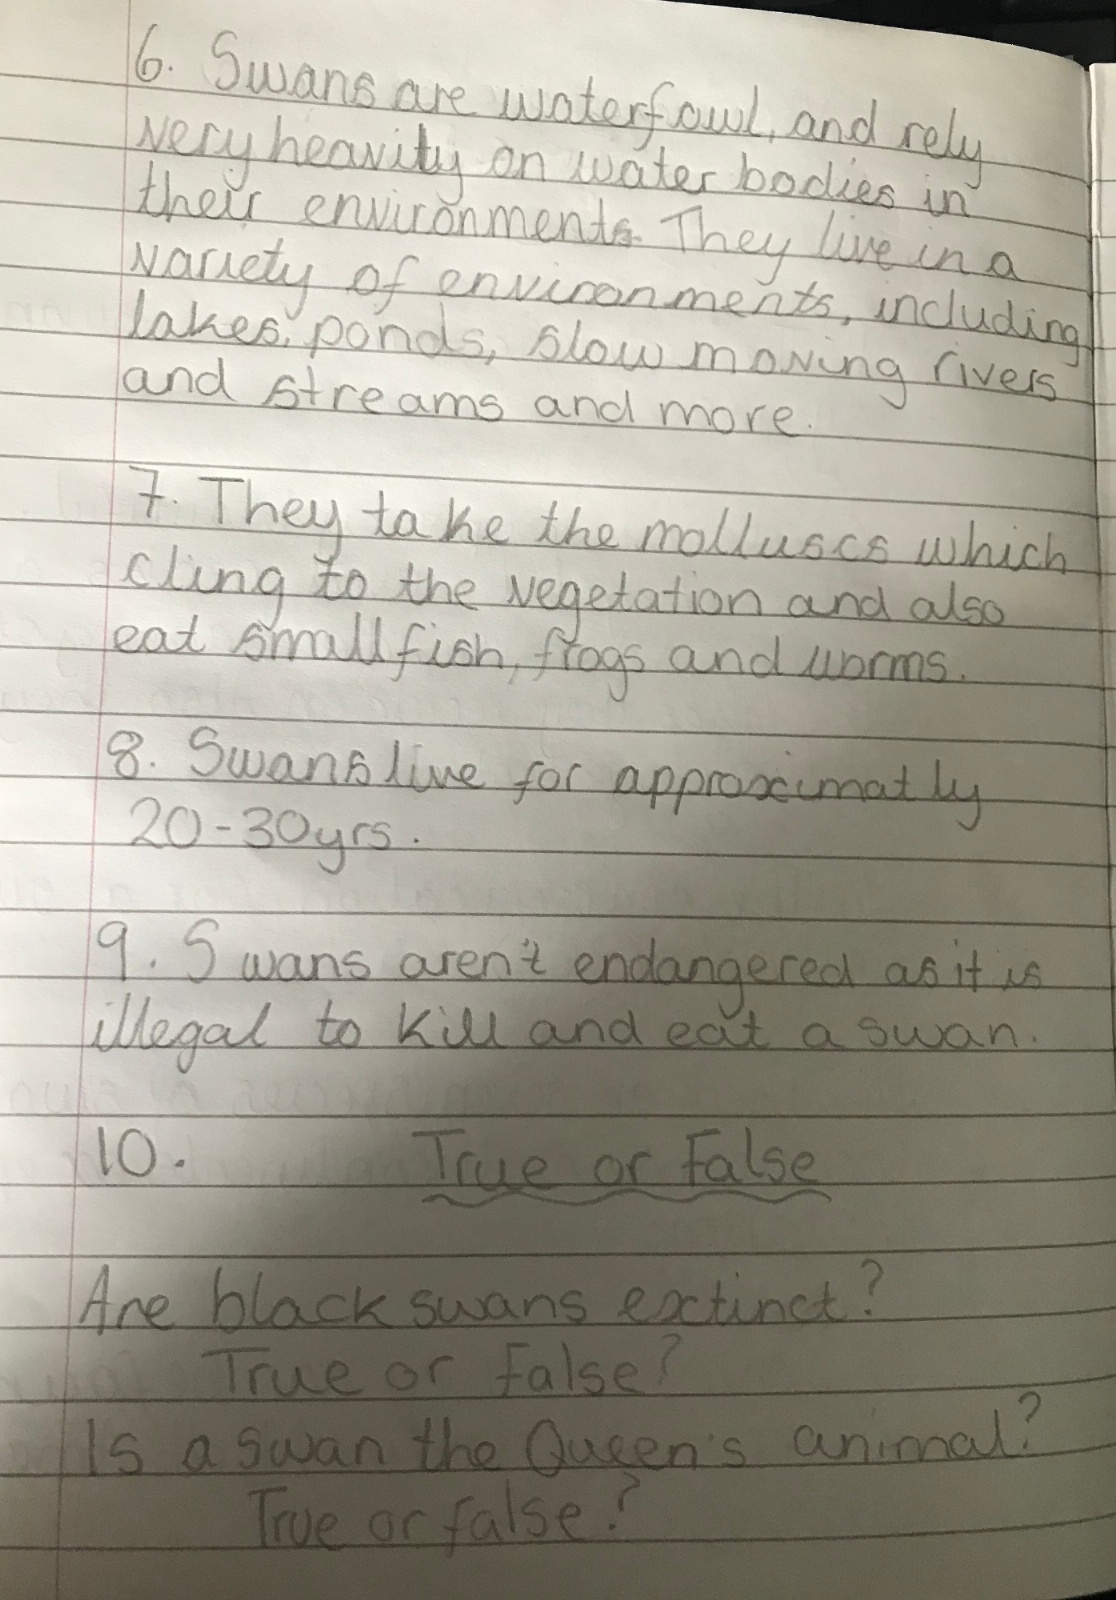 6. Swans are waterfowl, and rely
very heavity on water bodies in
their environments. They live in a
variety of environments, including
lakes, ponds, slow moving rivers
and streams and more.
7. They take the molluscs which
cling to the vegetation and also
eat small fish, frogs and worms.
8. Swans live for approximatly
20-30yrs.
9. Swans aren't endangered as it is
illegal to kill and eat a swan.
10. True or False
Are black swans extinct?
True or False?
Is a swan the Queen's animal?
True or false?